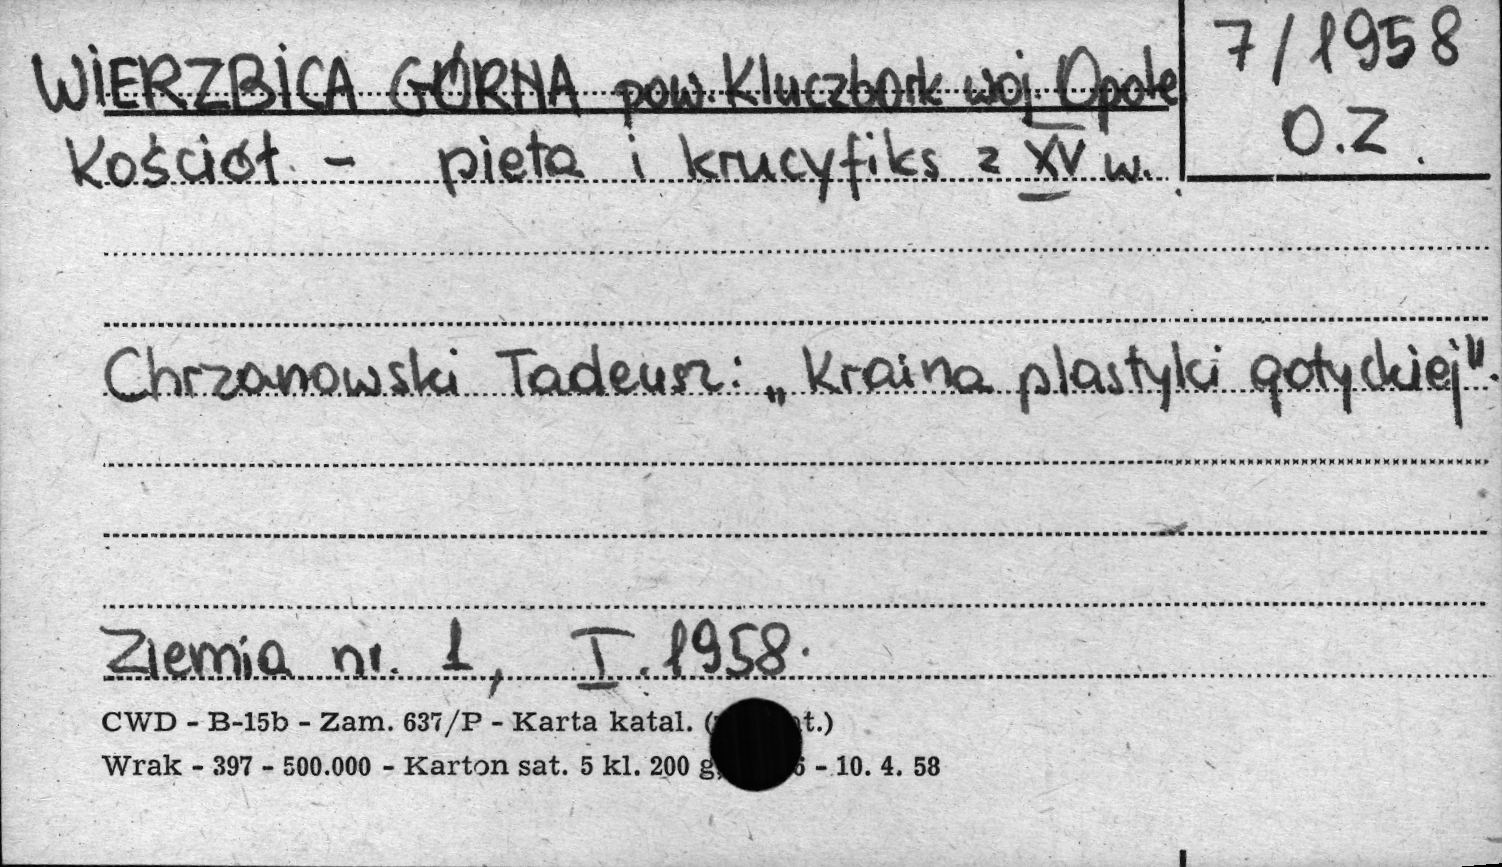 WIERZBICA GÓRNA pow. Kluczbork woj. Opole
7/1958
O.Z.
Kościół - pieta i krucyfiks z XV w.
Chrzanowski Tadeusz: „Kraina plastyki gotyckiej".
Ziemia nr. 1, I. 1958.
CWD - B-15b - Zam. 637/P - Karta katal. ( t.)
Wrak - 397 - 500.000 - Karton sat. 5 kl. 200 g, 6 - 10. 4. 58